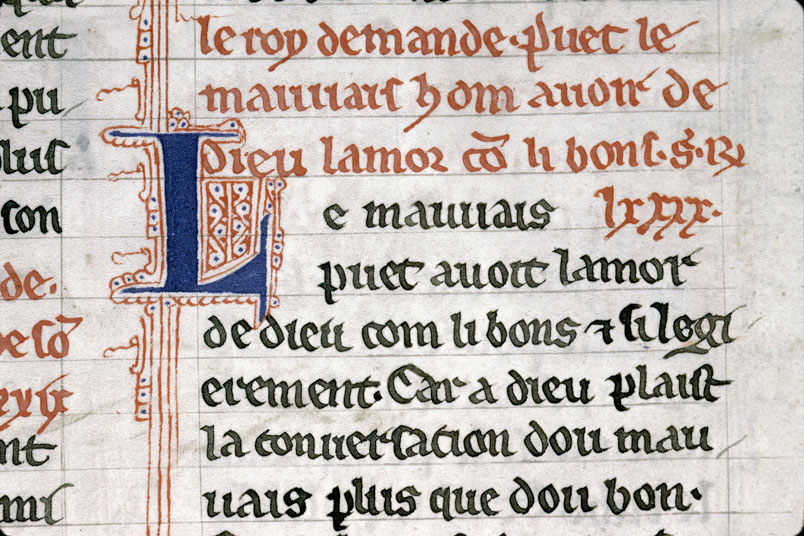 ent
pu
plus
con
de.
de sõ
xxix
nt
mi
le roy demande. puet le
mauuais hom auoir de
dieu lamor cõ li bons. S. R
lxxxx.
Le mauuais
puet auoir lamor
de dieu com li bons ⁊ si legi
erement. Car a dieu plaist
la conuersacion dou mau
uais plus que dou bon.